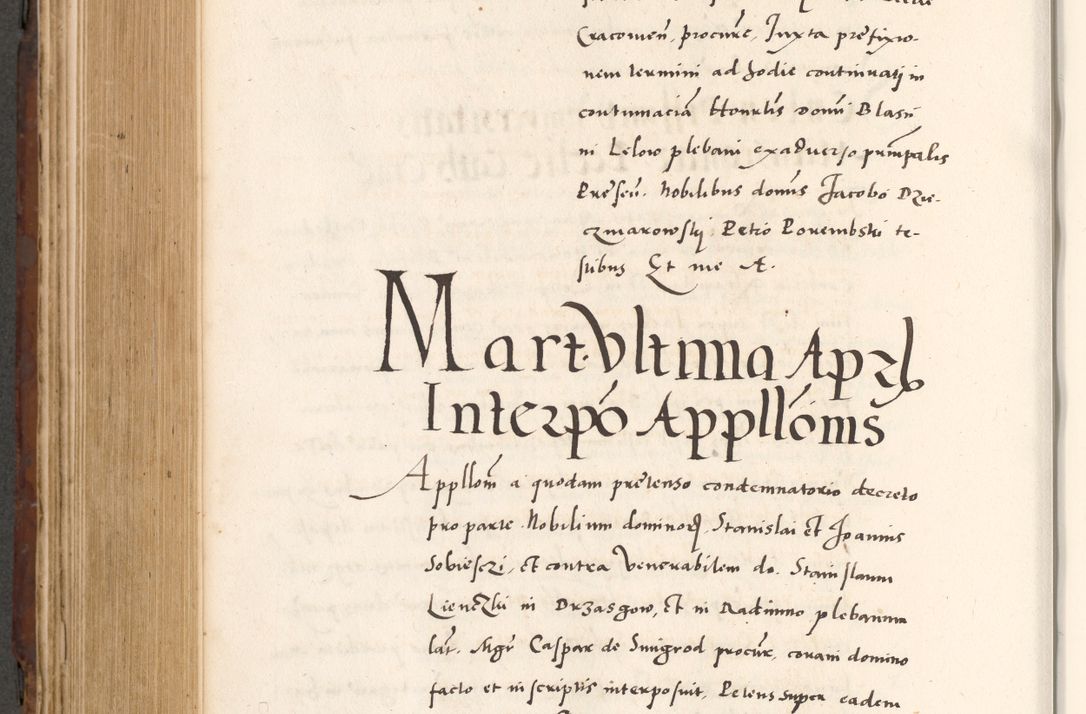 Cracovien̄. procure. Juxta prefixio-
nem termini ad hodie continuati in
contumaciā Honrlis domi Blasii
in Lelow plebani ex adverso principalis
Presen. Nobilibus domis Jacobo Dzie-
czmarowskij Petro Porembski te-
stibus Et me A.
Mart. Vltima Aprl
Interpō Appllōnis
Appllom̄ a quodam pretenso condemnatorio decreto
pro parte Nobilium dominoꝝ Stanislai et Joannis
Sobiesczi, et contra Venerabilem do. Stanislaum
Lienczki in Drzasgow, et in Radimno plebanum
lāt. Mgr Caspar de Snigrod procūr, coram domino
facto et in scriptis interposuit, Petens super eadem